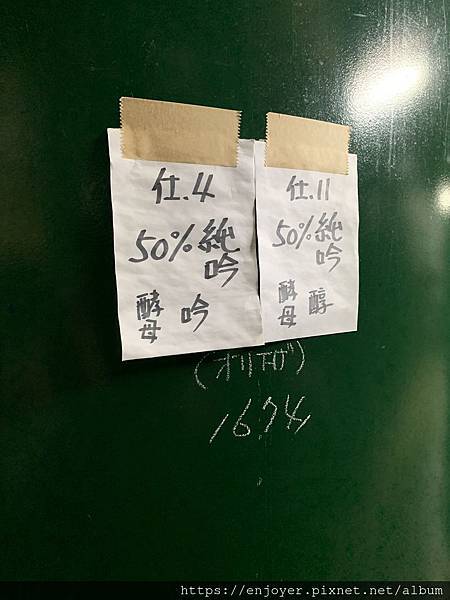 仕.4
50%純吟
酵母 吟
仕.11
50%純吟
酵母 醇
(オリ下げ)
1674
https://enjoyer.pixnet.net/album